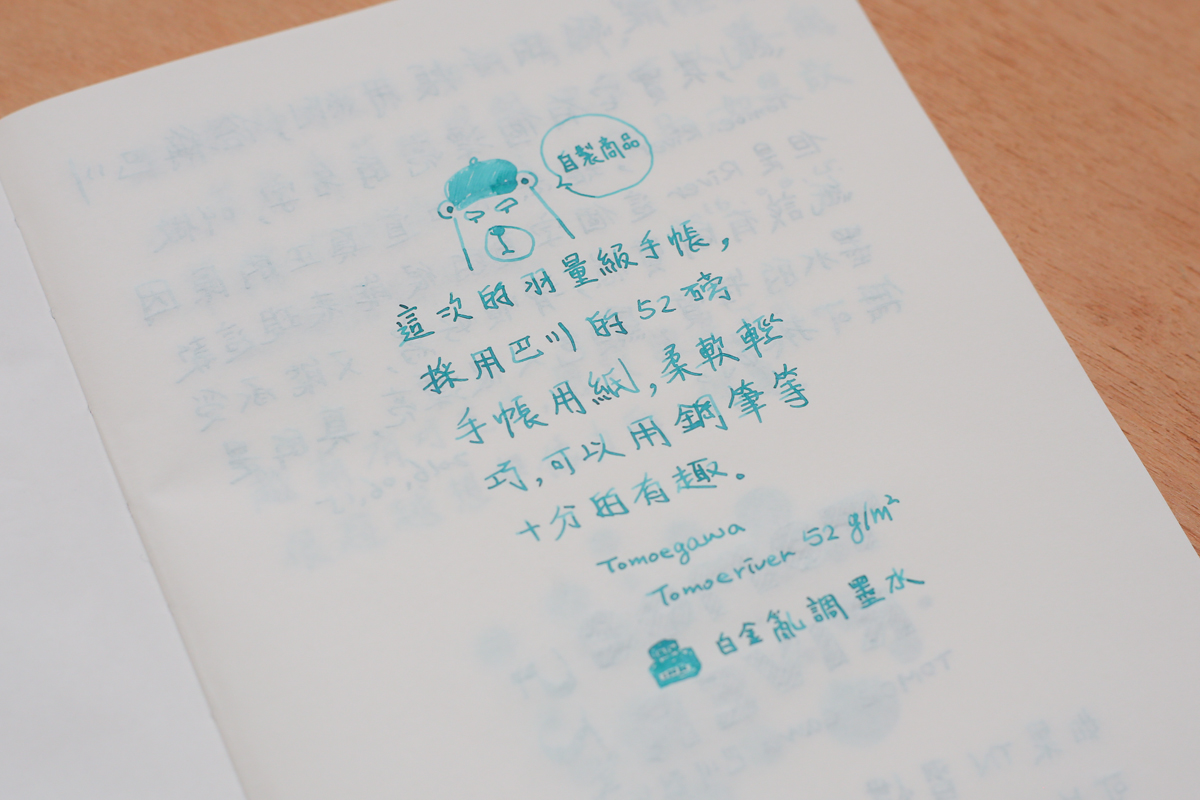 自製商品
這次的羽量級手帳，
採用巴川的52磅
手帳用紙，柔軟輕
巧，可以用鋼筆等
十分的有趣。
Tomoegawa
Tomoeriver 52 g/m²
白金亂調墨水